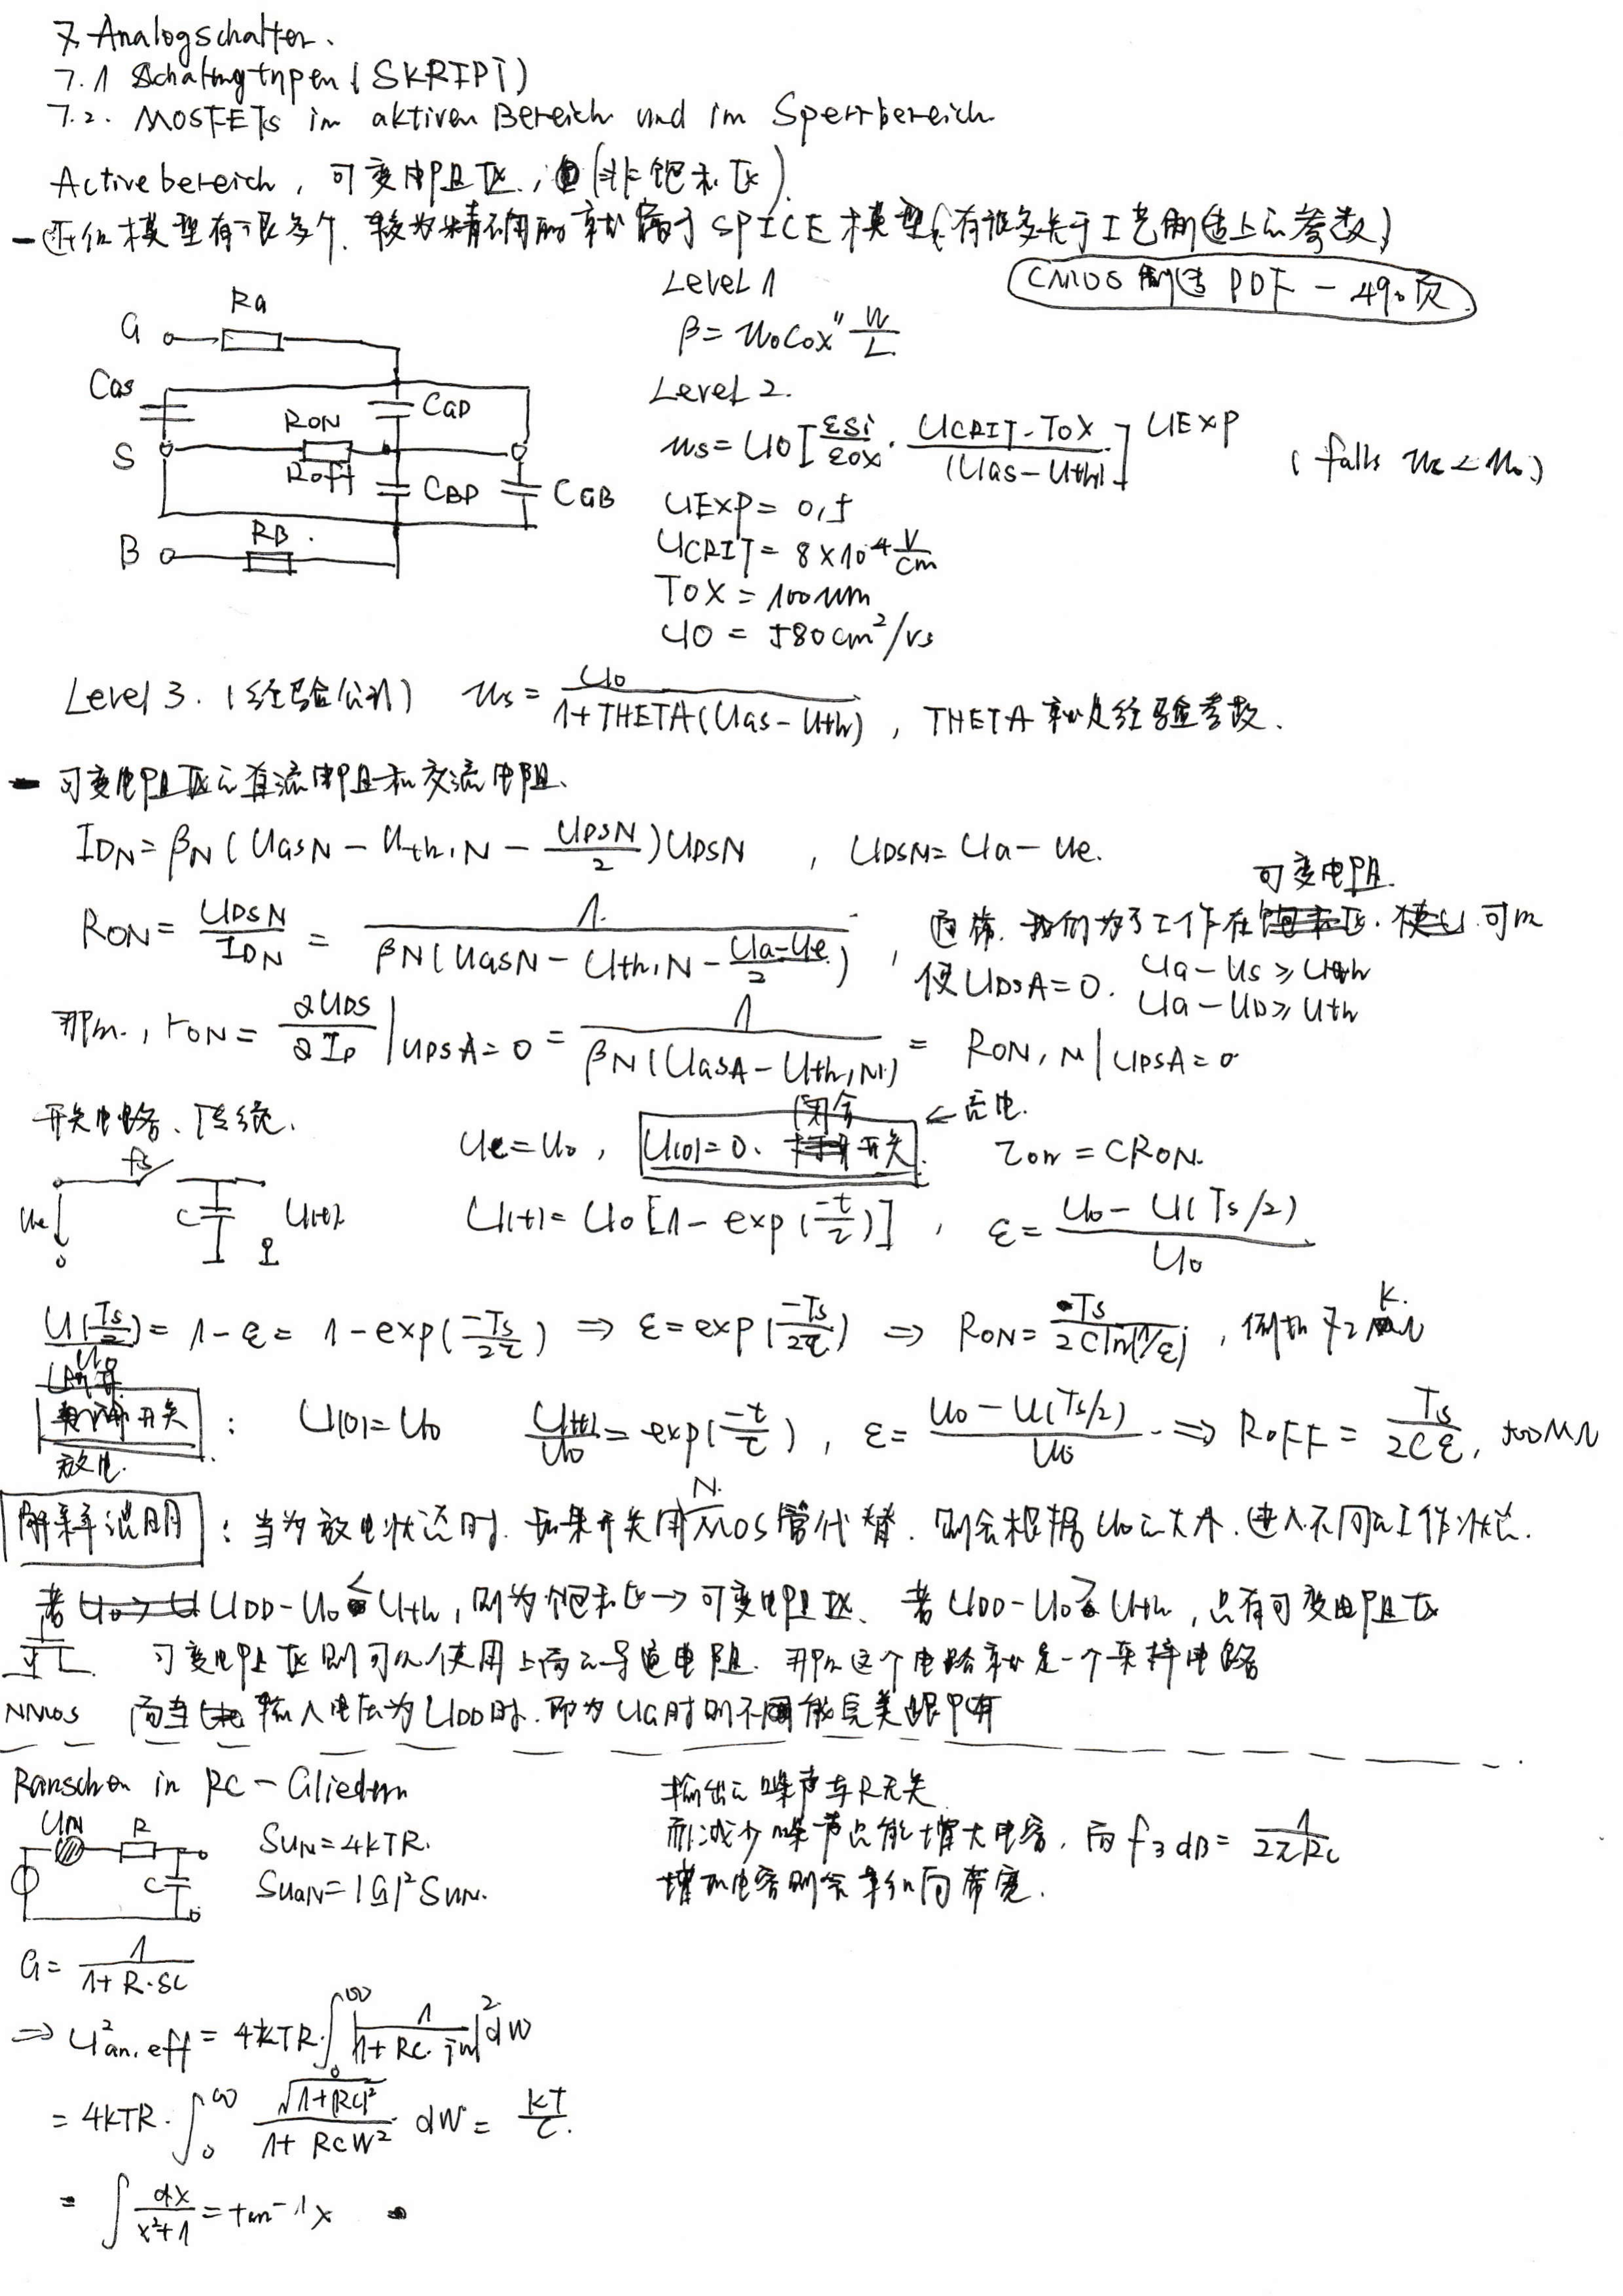 7. Analogschalter.
7.1 Schaltungtypen (SKRIPT)
7.2. MOSFETs in aktiven Bereich und im Sperrbereich
Active bereich, 可变电阻区, (非饱和区).
- 近似模型有很多个. 较为精确的就属于 SPICE 模型(有很多关于工艺制造上的参数)
CMOS 制造 PDF - 490页
Level 1
β = μ₀Cox" W/L
Level 2.
μs = U0[εsi/εox · UCRIT·TOX/(UGS-Uth)]^UEXP (falls μs < μ₀)
UEXP = 0,5
UCRIT = 8×10⁴ V/cm
TOX = 100nm
U0 = 580cm²/Vs
G RG
CGS CGD
S RON
Roff CBD CGB
B RB
Level 3. (经验公式) μs = U0/(1+THETA(UGS-Uth)), THETA 就是经验参数.
- 可变电阻区的直流电阻和交流电阻.
IDN = βN(UGSN - Uth,N - UDSN/2)UDSN , UDSN = Ua - Ue.
可变电阻.
RON = UDSN/IDN = 1/(βN(UGSN - Uth,N - (Ua-Ue)/2)), 通常. 我们为了工作在 可以
使UDSA=0. UG-US ≥ Uth
UG-UD ≥ Uth
那么, rON = ∂UDS/∂ID |UDSA=0 = 1/(βN(UGSA - Uth,N)) = RON,N|UDSA=0
开关电路、传统. Ue=U0, U(0)=0. 闭合 开关. ← 充电. τon = CRON.
fs
Ue C U(t)
U(t) = U0[1-exp(-t/τ)], ε = (U0-U(Ts/2))/U0
U(Ts/2)/U0 = 1-ε = 1-exp(-Ts/2τ) ⇒ ε = exp(-Ts/2τ) ⇒ RON = Ts/(2C ln(1/ε)), 例如 72 kΩ
断开 开关 : U(0)=U0 U(t)/U0 = exp(-t/τ), ε = (U0-U(Ts/2))/U0 ⇒ ROFF = Ts/(2Cε), 500MΩ
放电.
解释说明 : 当为放电状态时. 如果开关用 NMOS管代替. 则会根据U0的大小.进入不同的工作状态.
若 UDD-U0 < Uth, 则为饱和区→可变电阻区. 若 UDD-U0 > Uth, 只有可变电阻区
可变电阻区则可以使用上面的导通电阻. 那么这个电路就是一个采样电路
NMOS 而当 输入电压为UDD时.即为UG时则不能完美
Rauschen in RC-Gliedern
UN R
C
SUN = 4kTR.
SUaN = |G|²SUN.
输出的噪声与R无关
而减少噪声只能增大电容, 而 f3dB = 1/(2πRC)
增加电容则会 带宽.
G = 1/(1+R·SC)
⇒ U²an,eff = 4kTR·∫₀^∞ |1/(1+RC·jw)|² dW
= 4kTR·∫₀^∞ √(1+RC)²/(1+RCW²) dW = kT/C.
= ∫ dx/(x²+1) = tan⁻¹x